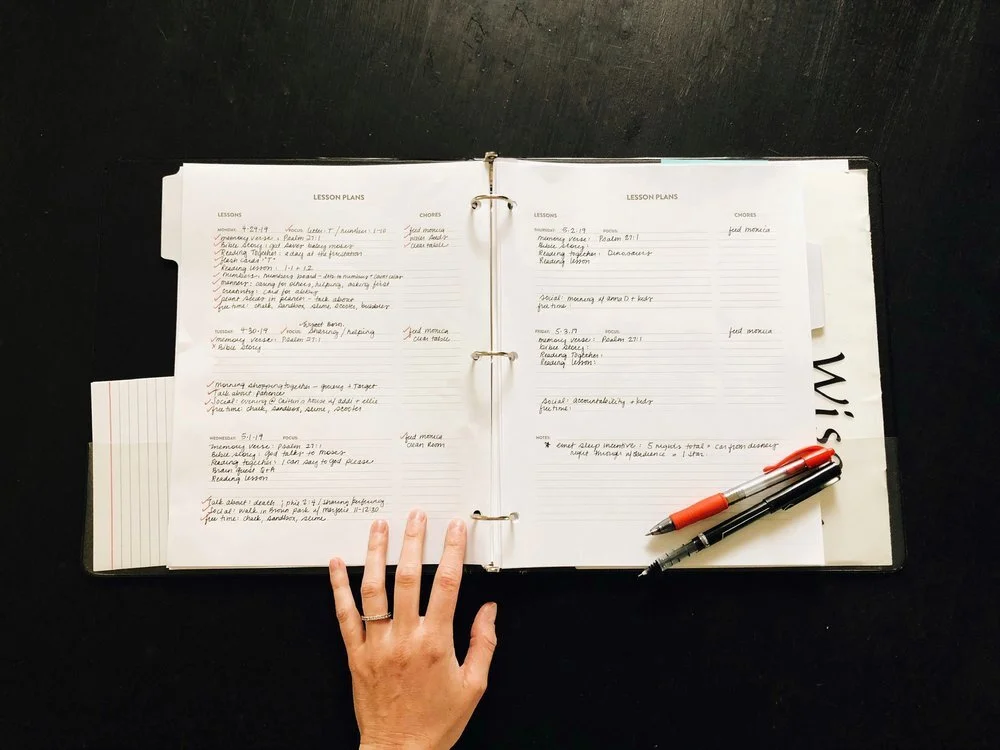 LESSON PLANS
LESSONS
CHORES
MONDAY: 4-29-19 FOCUS: letter: T / number: 1-10
feed monica
memory verse: Psalm 27:1
water seeds
Bible Story: god saves baby moses
clear table
Reading Together: a day at the
flash cards: "T"
Reading lesson: 1-1 + 1.2
Numbers: numbers board -
manners: caring for others, helping, asking first
creativity: card for
plant seeds in planter - talk about
free time: chalk, sandbox, slime, scooter, bubbles
TUESDAY: 4-30-19 FOCUS: Sharing / helping
feed monica
memory verse: Psalm 27:1
clear table
Bible Story
morning shopping together - grocery + Target
Talk about: patience
Social: evening @ Caitlin's house w/ addi + ellie
free time: chalk, sandbox, slime, scooter
WEDNESDAY: 5-1-19 FOCUS:
feed monica
memory verse: Psalm 27:1
clean room
Bible story: god talks to moses
Reading together: I can say to god please
Brain Quest Q+A
Reading lesson
Talk about: death; phil 2:4 / sharing
Social: walk in Brown park w/ 11-12:30
free time: chalk, sandbox, slime
LESSON PLANS
LESSONS
CHORES
THURSDAY: 5-2-19 FOCUS:
feed monica
memory verse: Psalm 27:1
Bible Story:
Reading together: Dinosaurs
Reading lesson
Social: morning w/ anna D + kids
free time:
FRIDAY: 5-3-19 FOCUS:
feed monica
memory verse: Psalm 27:1
Bible Story:
Reading Together:
Reading lesson:
Social: accountability + kids
free time:
NOTES:
* sleep incentive: 5 nights total = car from disney
night through w/ obedience = 1 star
Wis